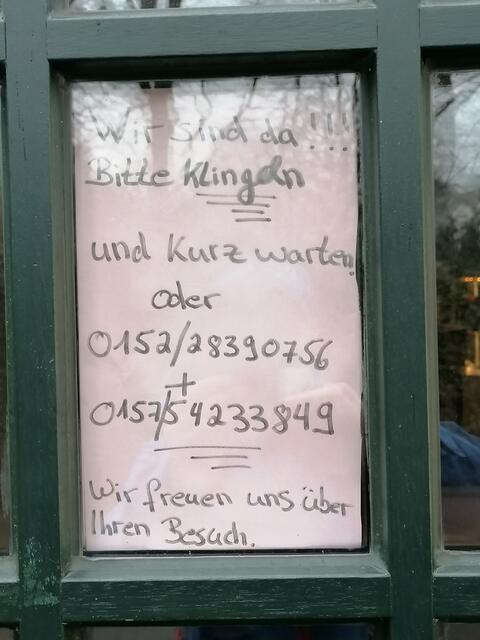 Wir sind da !!!
Bitte Klingeln
und Kurz warten!
oder
0152/28390756
+
0157/54233849
Wir freuen uns über
Ihren Besuch.